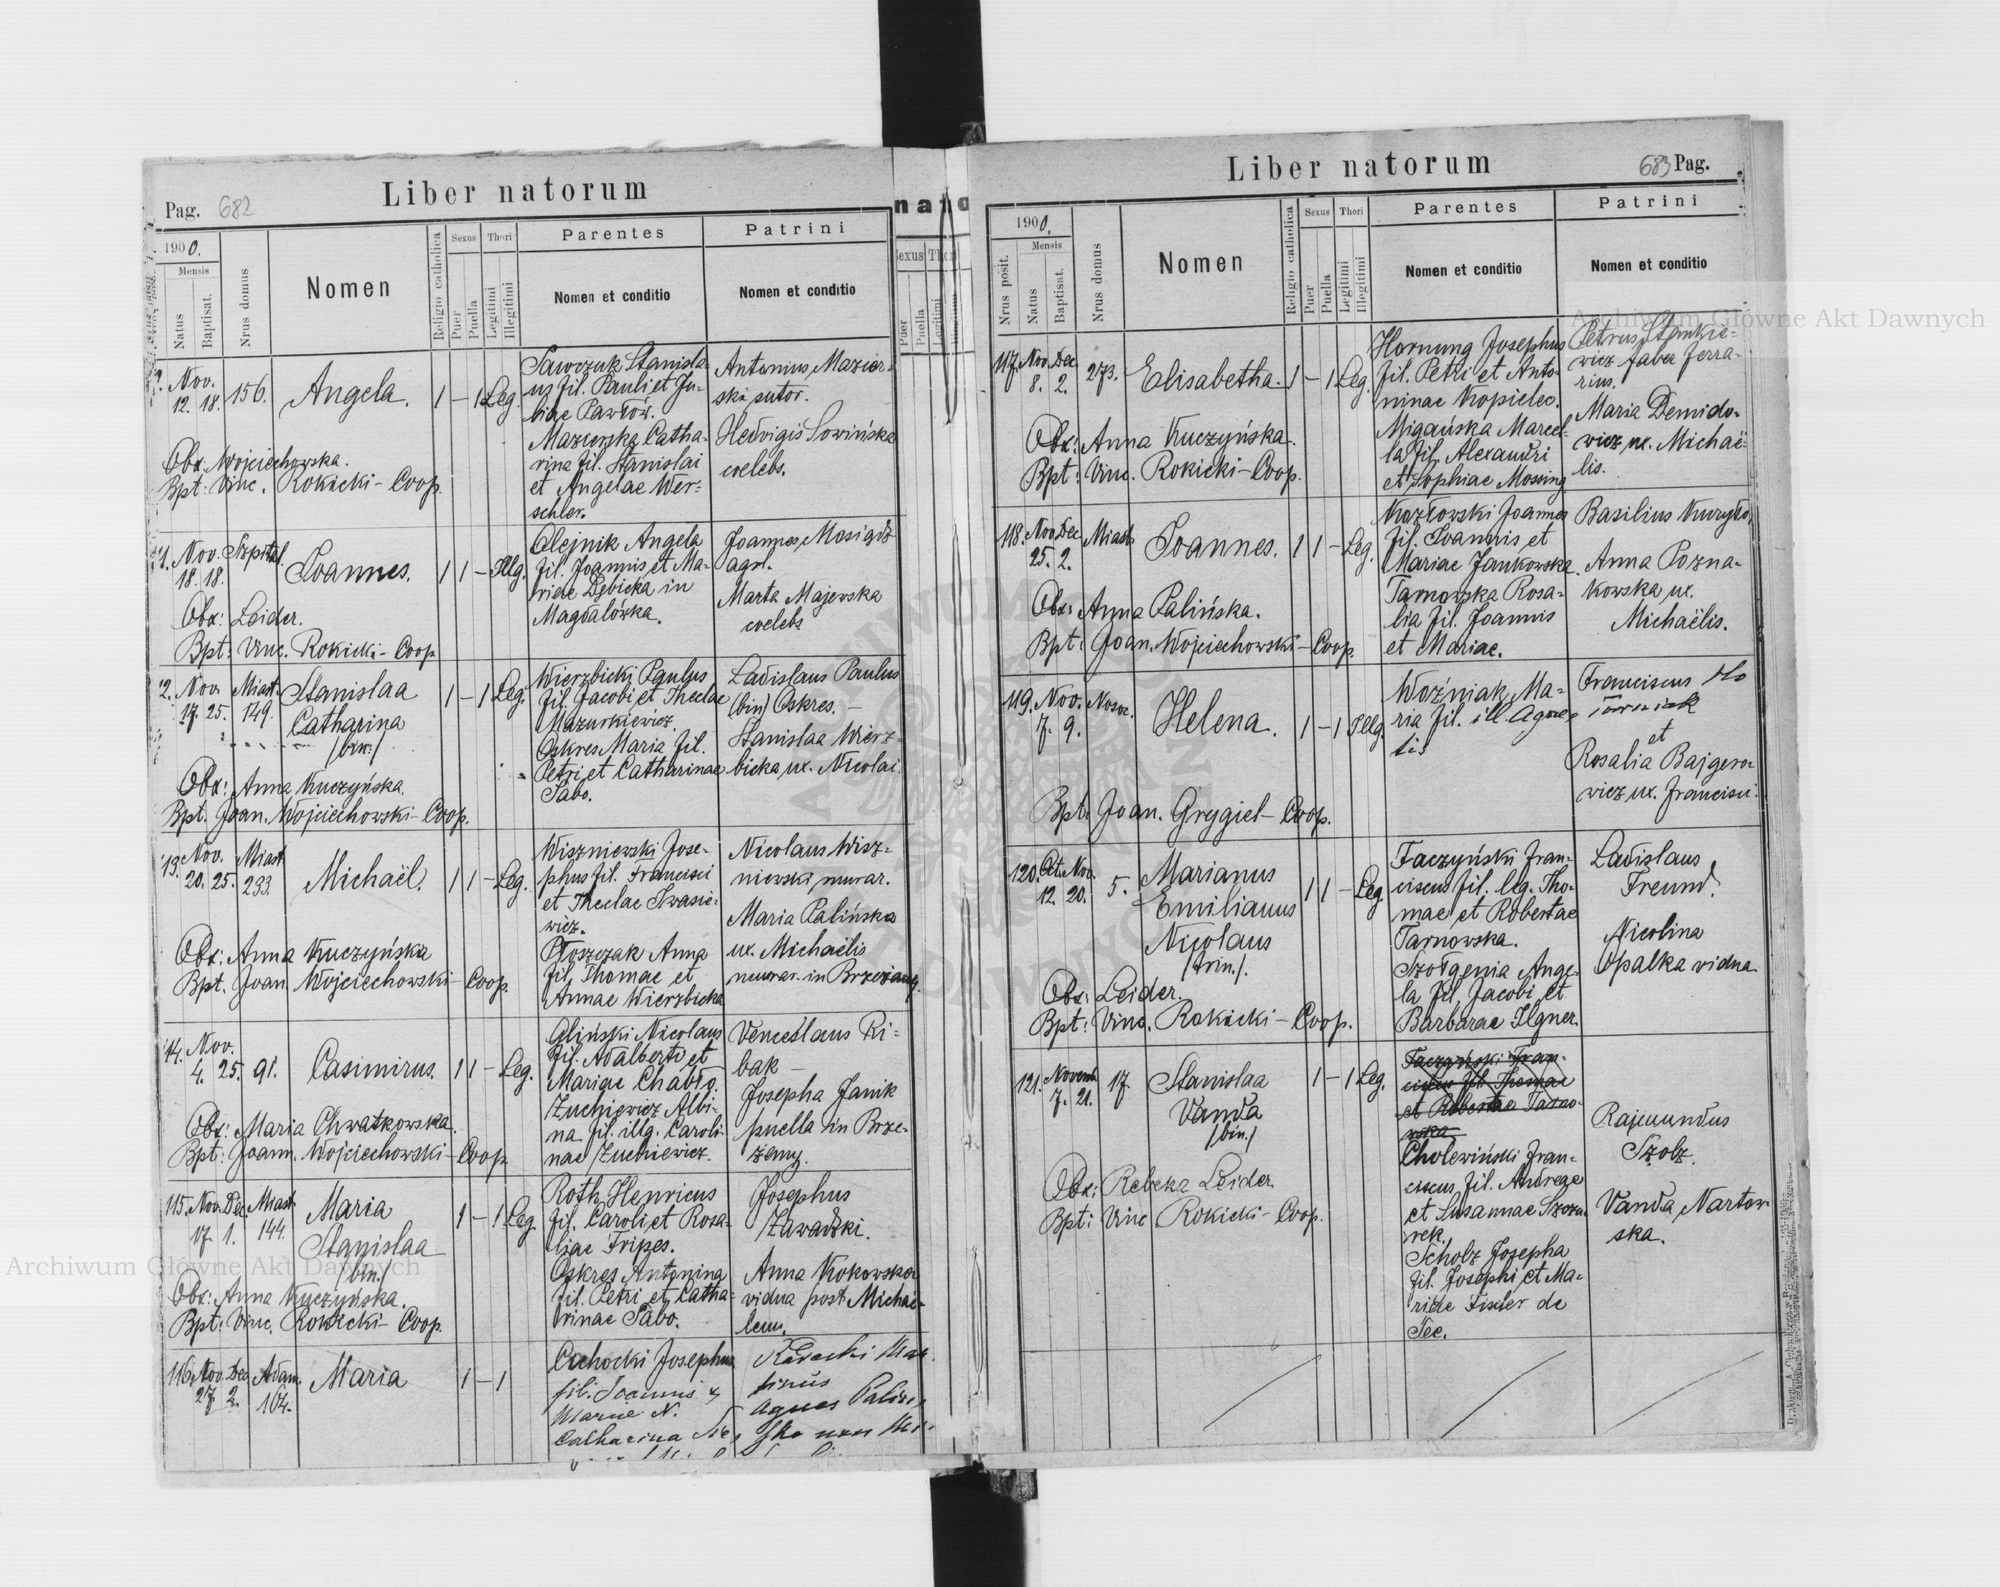 Pag. 682
Liber natorum
1900.
Mensis
Natus
Baptisat.
Nrus domus
Nomen
Religio catholica
Sexus
Puer
Puella
Thori
Legitimi
Illegitimi
Parentes
Nomen et conditio
Patrini
Nomen et conditio
Nov.
12. 18. 156. Angela. 1 – 1 Leg.
Sawczuk Stanisla-
us fil. Pauli et Ju-
liae Pawłów.
Mazierska Catha-
rina fil. Stanislai
et Angelae Wer-
schler.
Antonius Mazier-
ski sutor.
Hedvigis Sowińska
coelebs.
Obx: Wojciechowska.
Bpt: Vinc. Rokicki – Coop.
Nov. Szpital.
18. 18. Joannes. 1 1 – Illg.
Olejnik Angela
fil. Joannis et Ma-
riae Dębicka in
Magdalówka.
Joannes Mosiądz
agrl.
Marta Majewska
coelebs
Obx: Leider.
Bpt: Vinc. Rokicki – Coop.
Nov. Miast.
17. 25. 149. Stanislaa 1 – 1 Leg.
Catharina
/bin./
Wierzbicki Paulus
fil. Jacobi et Theclae
Mazurkiewicz.
Oskres Maria fil.
Petri et Catharinae
Sabo.
Ladislaus Paulus
(bin) Oskres. –
Stanislaa Wierz-
bicka ux. Nicolai.
Obx: Anna Kuczyńska.
Bpt. Joan. Wojciechowski – Coop.
Nov. Miast.
20. 25. 233. Michaël. 1 1 – Leg.
Wiszniewski Jose-
phus fil. Francisci
et Theclae Iwasie-
wicz.
Płoszczak Anna
fil. Thomae et
Annae Wierzbicka
Nicolaus Wisz-
niewski, murar.
Maria Palińska
ux. Michaëlis
murar. in Brzeżany
Obx: Anna Kuczyńska
Bpt. Joan. Wojciechowski – Coop.
Nov.
4. 25. 91. Casimirus. 1 1 – Leg.
Gliński Nicolaus
fil. Adalberti et
Mariae Chabło.
Żuchiewicz Albi-
na fil. illg. Caroli-
nae Żuchiewicz.
Venceslaus Ri-
bak –
Josepha Janik
puella in Brze-
żany.
Obx: Maria Chwatkowska.
Bpt: Joann. Wojciechowski – Coop.
115. Nov. Dec. Miast.
17. 1. 144. Maria 1 – 1 Leg.
Stanislaa
/bin./
Roth Henricus
fil. Caroli et Rosa-
liae Fripes.
Oskres Antonina
fil. Petri et Catha-
rinae Sabo.
Josephus
Zawadzki.
Anna Kokowska
vidua post Michae-
lem.
Obx: Anna Kuczyńska.
Bpt: Vinc. Rokicki – Coop.
116. Nov. Dec. Adam.
27. 2. 164. Maria 1 – 1
Cichocki Josephus
fil. Joannis &
Mariae N.
Catharina
tinus
Agnes Palin-
ska
Liber natorum
683 Pag.
1900.
Nrus posit.
Mensis
Natus
Baptisat.
Nrus domus
Nomen
Religio catholica
Sexus
Puer
Puella
Thori
Legitimi
Illegitimi
Parentes
Nomen et conditio
Patrini
Nomen et conditio
117. Nov. Dec.
8. 2. 273. Elisabetha. 1 – 1 Leg.
Hornung Josephus
fil. Petri et Anto-
ninae Kopielec.
Migańska Marcel-
la fil. Alexandri
et Sophiae Mossing.
Petrus Stankie-
wicz faber ferra-
rius.
Maria Demido-
wicz ux. Michaë-
lis.
Obx: Anna Kuczyńska.
Bpt: Vinc. Rokicki – Coop.
118. Nov. Dec. Miast.
25. 2. Joannes. 1 1 – Leg.
Kozłowski Joannes
fil. Joannis et
Mariae Jankowska.
Tarnowska Rosa-
lia fil. Joannis
et Mariae.
Basilius Kuryło,
Anna Pozna-
kowska ux.
Michaëlis.
Obx: Anna Palińska.
Bpt: Joan. Wojciechowski – Coop.
119. Nov. Nosoc.
7. 9. Helena. 1 – 1 Illg.
Woźniak Ma-
ria fil. ill. Agne-
tis
Franciscus
et
Rosalia Bajgero-
wicz ux. Francisci.
Bpt. Joan. Grygiel – Coop.
120. Oct. Nov.
12. 20. 5. Marianus 1 1 – Leg.
Emilianus
Nicolaus
/trin./.
Faczyński Fran-
ciscus fil. leg. Tho-
mae et Robertae
Tarnowska.
Szołgenia Ange-
la fil. Jacobi et
Barbarae Ilgner.
Ladislaus
Freund.
Nicolina
Opalka vidua
Obx: Leider.
Bpt: Vinc. Rokicki – Coop.
121. Novemb.
7. 21. 17. Stanislaa 1 – 1 Leg.
Vanda
/bin./
Faczyński Fran-
ciscus fil. Thomae
et Robertae Tarno-
wska
Cholewiński Fran-
ciscus fil. Andreae
et Susannae Szczu-
rek.
Scholz Josepha
fil. Josephi et Ma-
riae Fixler de
Tee.
Rajmundus
Szolz.
Vanda Nartow-
ska.
Obx: Rebeka Leider.
Bpt: Vinc Rokicki – Coop.
Archiwum Główne Akt Dawnych
Archiwum Główne Akt Dawnych